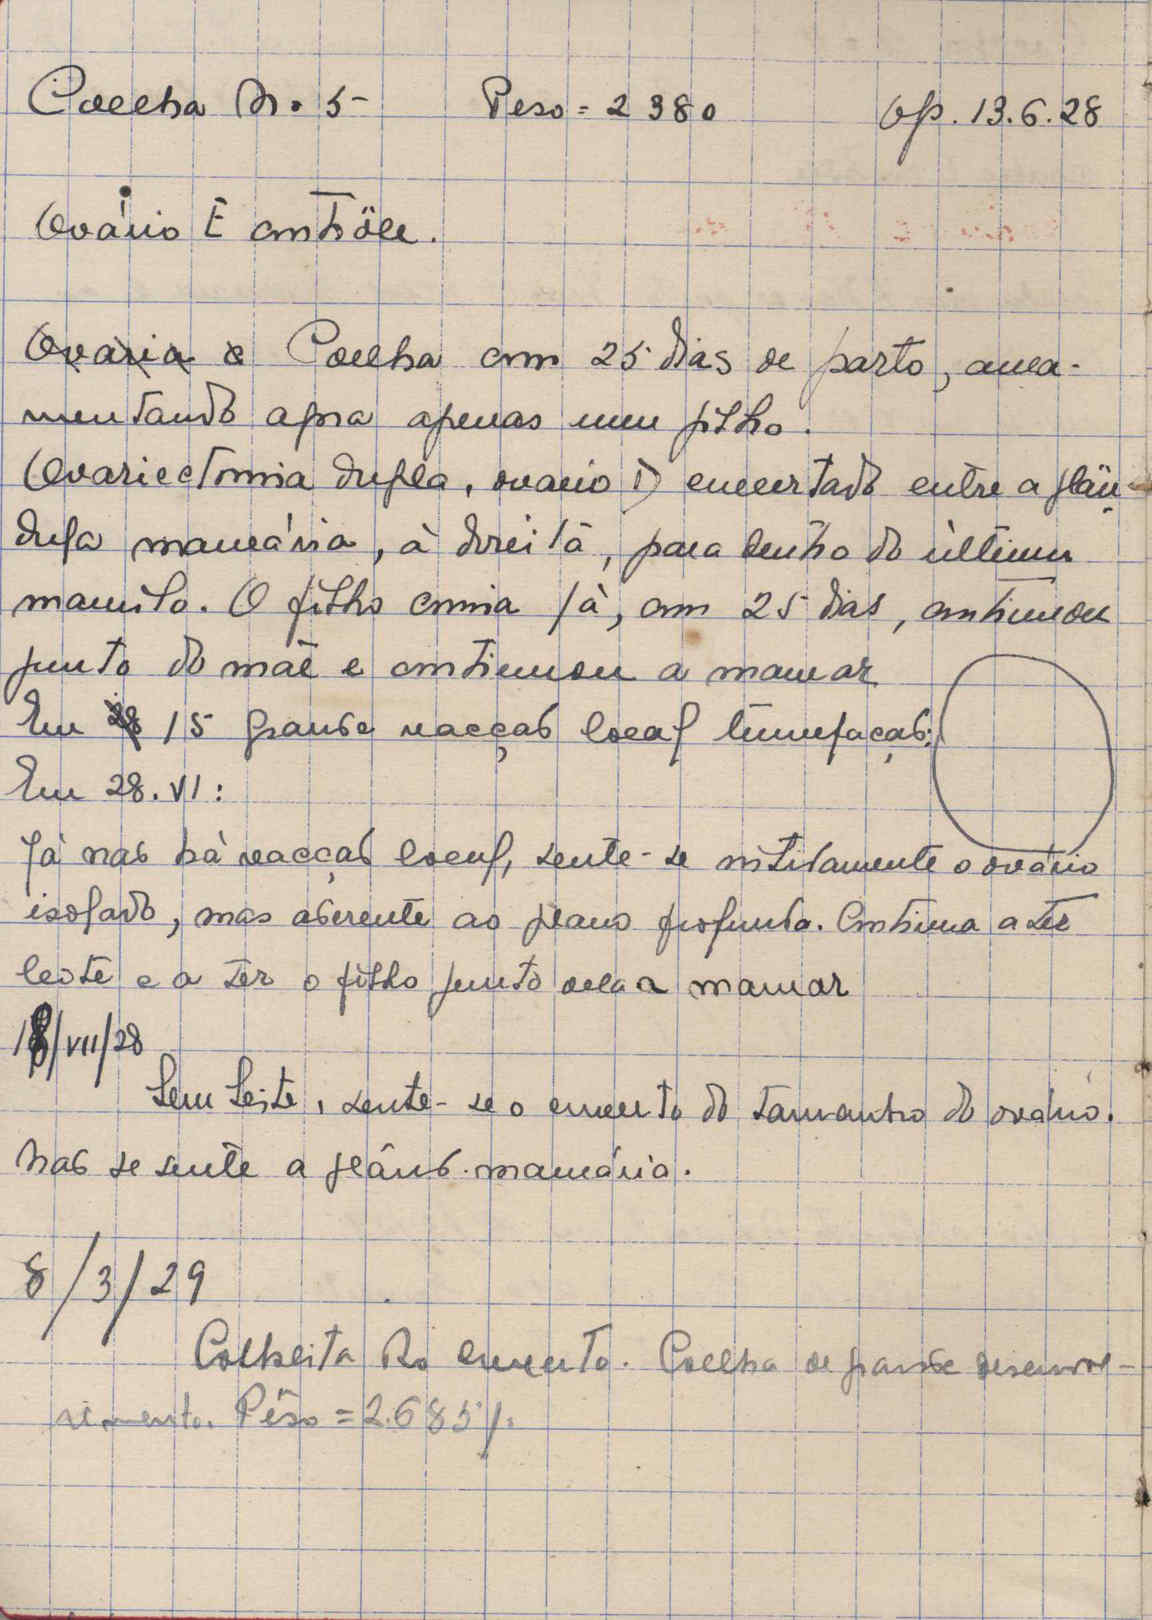 Coelha N. 5- Peso = 2380 Op. 13.6.28
Ovário E contrôle.
Ovaria e Coelha com 25 dias de parto, ama-
mentando agora apenas um filho.
Ovariectomia dupla, ovario D enxertado entre a glân-
dula mamária, à direita, para dentro do último
mamilo. O filho comia já, com 25 dias, continuou
junto da mãe e continuou a mamar
Em 28 15 grande reacção local tumefação:
Em 28.VI:
Já não há reacção local, sente-se nitidamente o ovário
isolado, mas aderente ao plano profundo. Continua a ter
leite e a ter o filho junto dela a mamar
18/VII/28
Sem leite, sente-se o enxerto do tamanho do ovário.
Não se sente a glând. mamária.
8/3/29
Colheita do enxerto. Coelha de grande desenvol-
vimento. Pêso = 2.685 g.